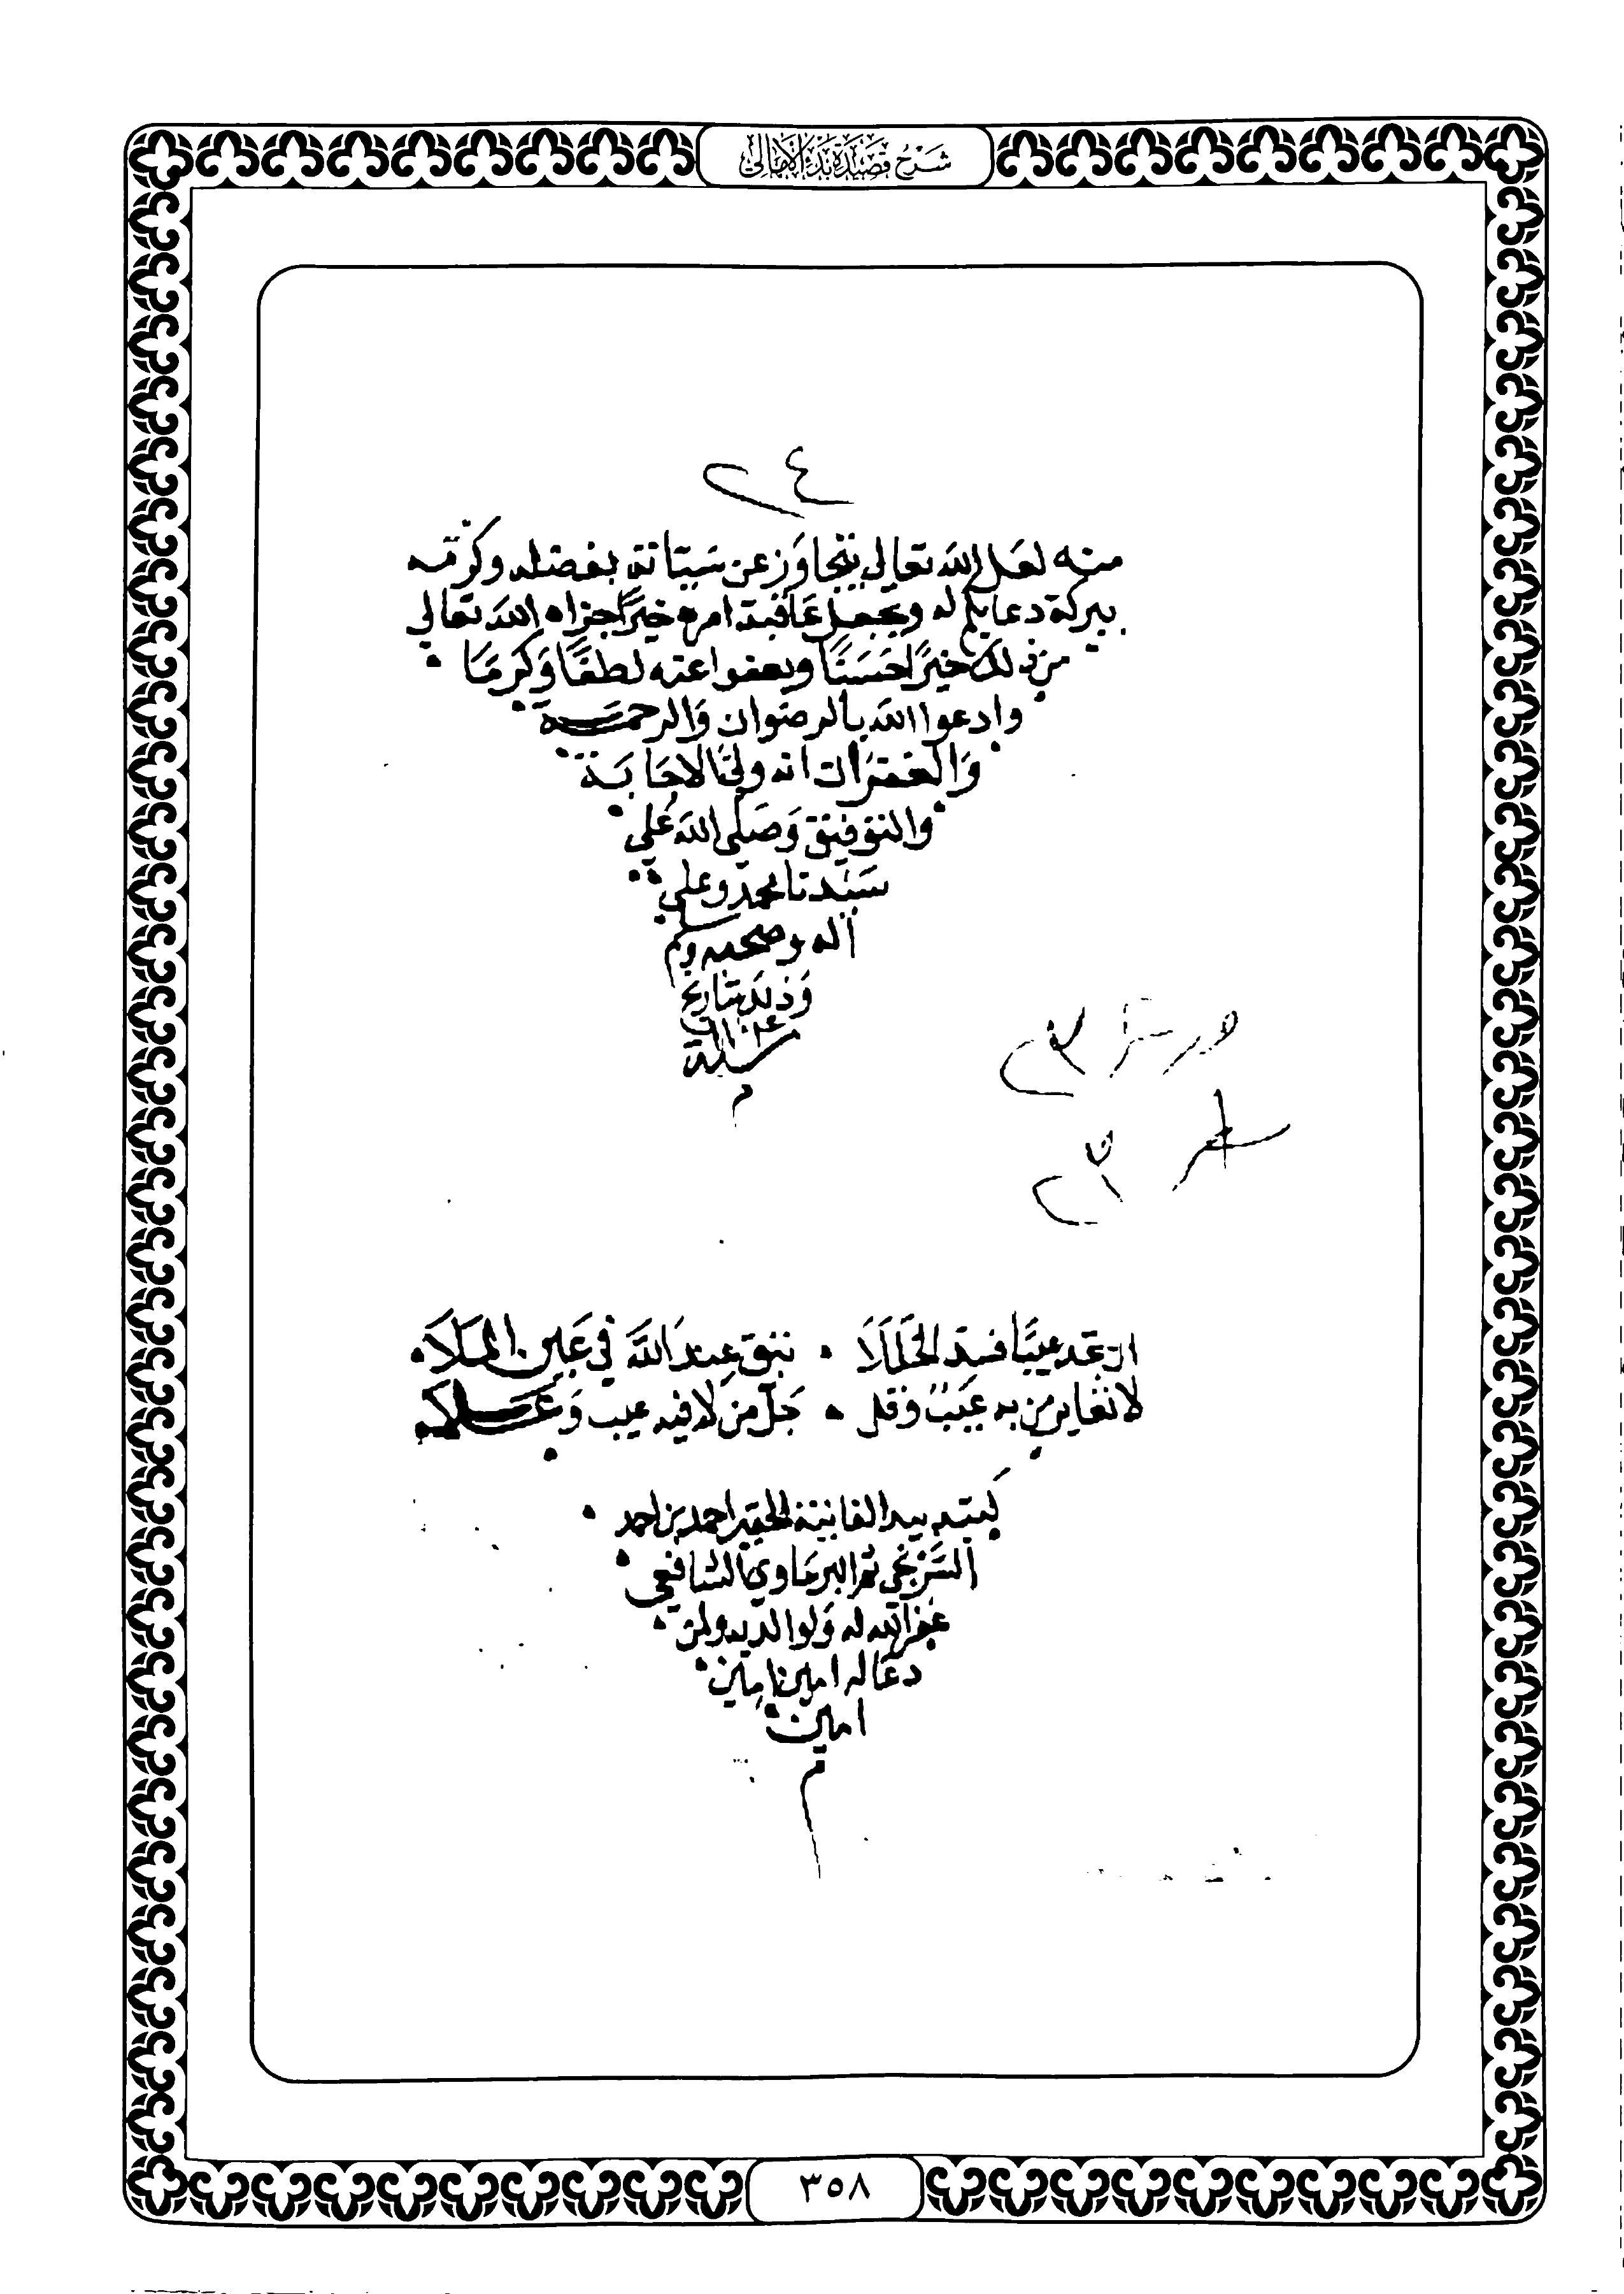 شَرْحُ قَصِيدَةِ بَدْءِ الأَمَالِي
٢٤
منه لعل الله تعالى يتجاوز عن سيئاته بفضله وكرمه
ببركة دعايكم له ويجعل عاقبة امره خيرًا جزاه الله تعالى
من ذلك خيرًا حسنًا ويعفوا عنه لطفًا وكرمًا
وادعوا الله بالرضوان والرحمة
والغفران انه ولي الاجابة
والتوفيق وصلى الله على
سيدنا محمد وعلى
اله وصحبه وسلم
وذلك بتاريخ
سنة
م
ان تجد عيبًا فسد الخللا . تبق عند الله في عين الملا
لا تعاير من به عيب وقل . جل من لا فيه عيب وعلا
كتبه بيده الفانية الحقير احمد بن احمد
ثم البرماوي الشافعي
غفر الله له ولوالديه ولمن
دعا له امين امين
امين
م
٣٥٨